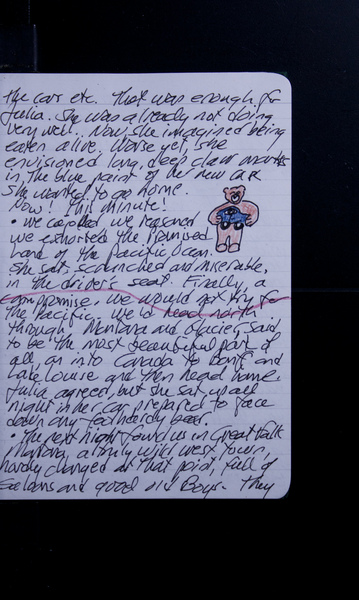 the cars etc. That was enough for
Julia. She was already not doing
very well. Now, she imagined being
eaten alive. Worse yet, she
envisioned long, deep claw marks
in the blue paint of her new car
She wanted to go home.
Now! This minute!
• We cajoled we reasoned
we exhorted the Promised
Land of the Pacific Ocean.
She sat, scrunched and miserable,
in the drivers seat. Finally, a
compromise. We would not try for
the Pacific. We'd head north
through Montana and Glacier, said
to be the most beautiful part of
all, on into Canada to Banff and
Lake Louise and then head home.
Julia agreed, but she sat up all
night in her car prepared to face
down any foolhardy bear.
• The next night found us in Great Falls
Montana, a truly wild west town,
hardly changed at that point, full of
Saloons and good old Boys. They